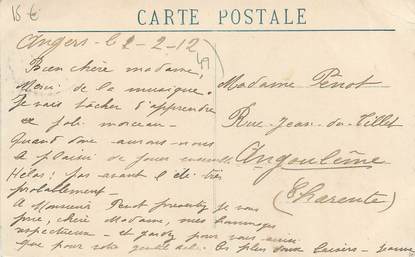 15 €
CARTE POSTALE
Angers. le 2-2-12
49
Bien chère madame,
Merci de la musique.
Je vais tâcher d'apprendre
ce joli morceau —
Quand donc aurons-nous
le plaisir de jouer ensemble
Hélas! pas avant l'été très
probablement —
A Monsieur Penot présentez je vous
prie, chère Madame, mes hommages
respectueux — et gardez pour vous
que pour votre plus doux baisers — Jeanne
Madame Penot
Rue Jean-du-Tillet
Angoulême
(Charente)